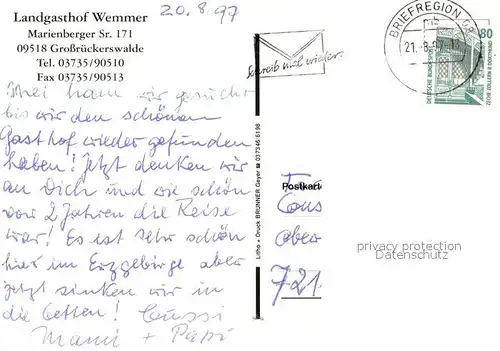 Landgasthof Wemmer
Marienberger Sr. 171
09518 Großrückerswalde
Tel. 03735/90510
Fax 03735/90513
20.8.97
BRIEFREGION 09
mb
21.-8.97-
80
DEUTSCHE BUNDESPOST
ZECHE ZOLLERN II DORTMUND
Schreib mal wieder.
Mei ham wir gesucht
bis wir den schönen
Gasthof wieder gefunden
haben! Jetzt denken wir
an Dich und wie schön
vor 2 Jahren die Reise
war! Es ist sehr schön
hier im Erzgebirge aber
jetzt sinken wir in
die Betten! Bussi
Mami + Papi
Litho + Druck BRUNNER Geyer ☎ 037346 6198
Postkarte
Ober
721
privacy protection
Datenschutz